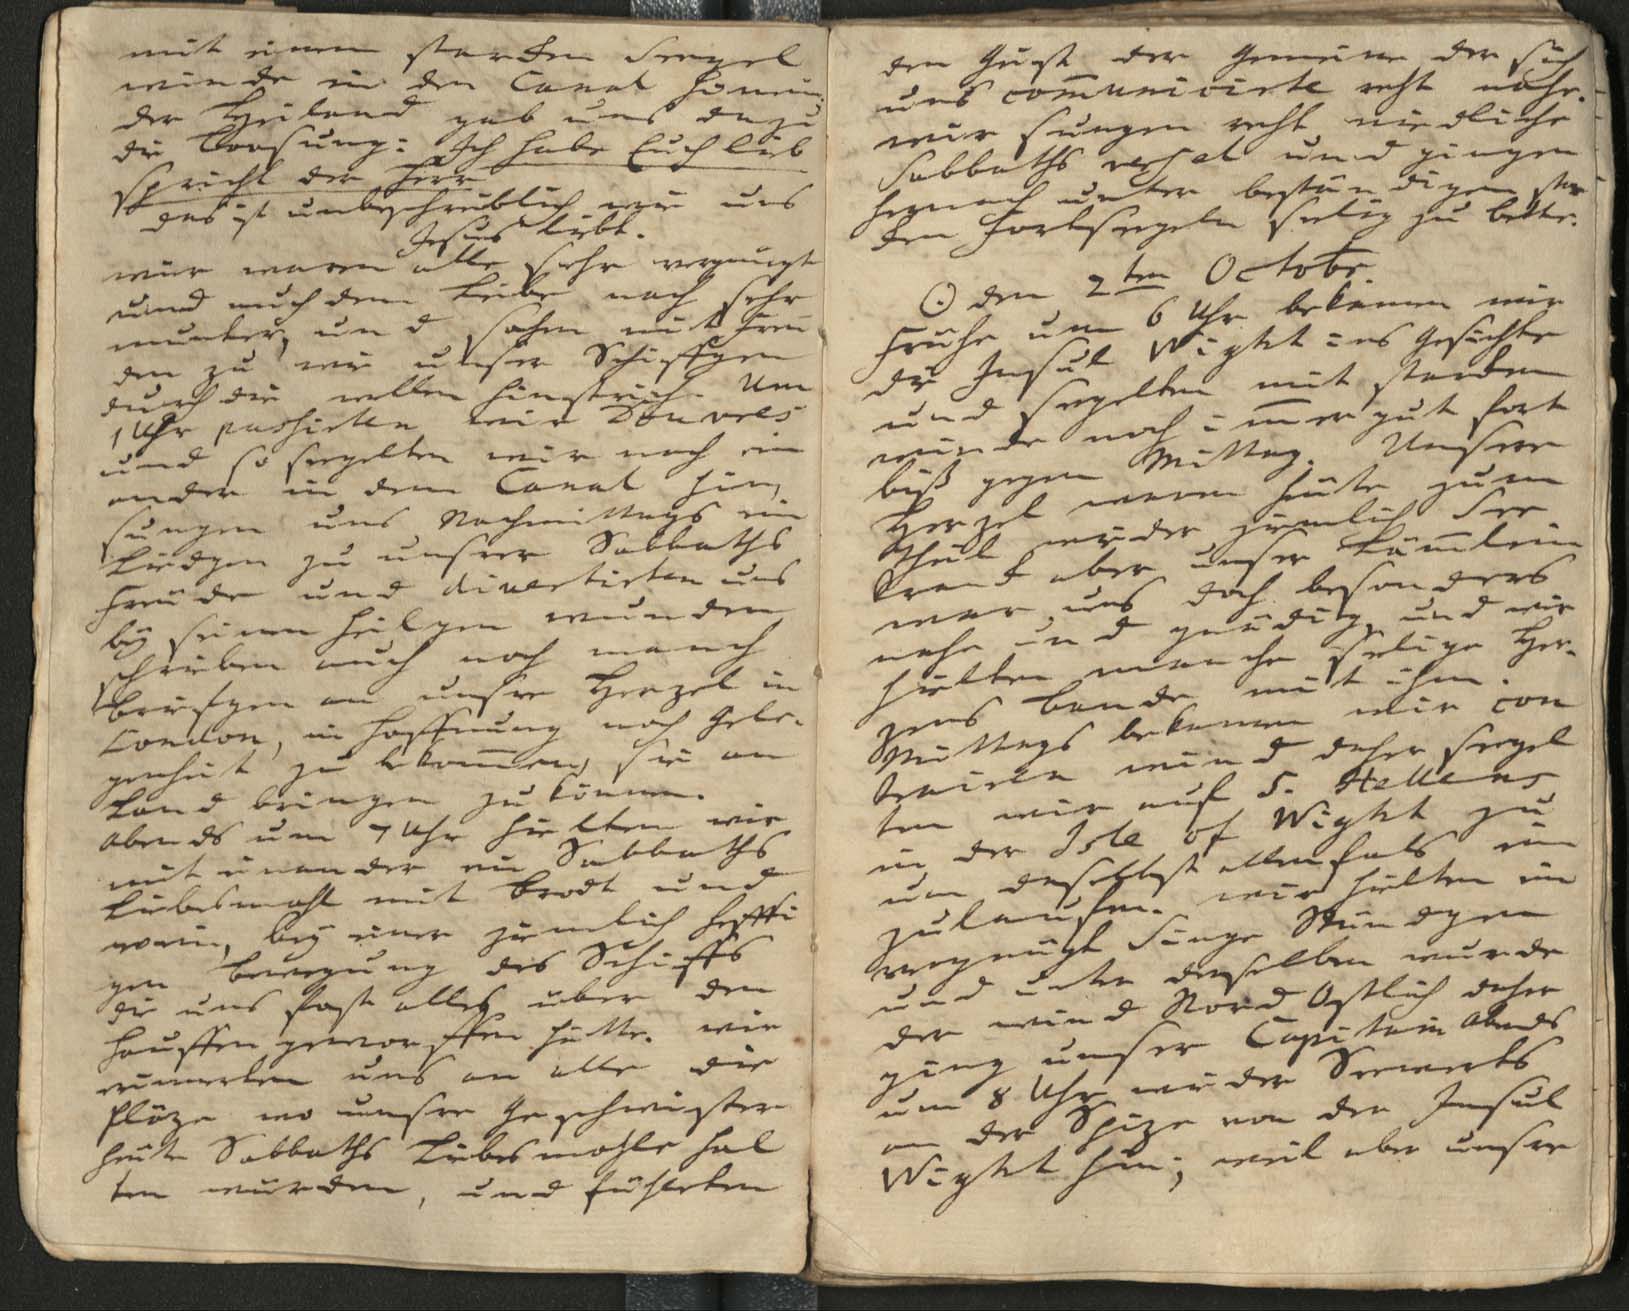 mit einem starcken Seegel
winde in den Canal hinein,
der Heiland gab uns dazu
die Loosung: Ich habe Euch lieb
spricht der Herr
das ist unbeschreiblich wie uns
Jesus liebt.
wir waren alle sehr vergnügt
und auch dem Leibe nach sehr
munter, und sahen mit Freu
den zu wie unser Schiffgen
durch die wellen hinstrich. Um
1 Uhr passirten wir Douvres
und so seegelten wir nach ein
ander in dem Canal hin,
sungen uns Nachmittags ein
Liedgen zu unsrer Sabbaths
Freude und divertirten uns
bey seinen heilgen wunden
schrieben auch noch manch
briefgen an unsre Herzel in
London, in Hoffnung noch Gele-
genheit zu bekom̅en, sie an
Land bringen zu können.
Abends um 7 Uhr hielten wir
mit einander ein Sabbaths
Liebesmahl mit Brodt und
wein, bey einer ziemlich hefti
gen Bewegung des Schiffs
die uns fast alles über den
Hauffen geworffen hätte. wir
erinnerten uns an alle die
Pläze wo unsre Geschwister
heute Sabbaths Liebesmahle hal
ten wurden, und fühleten
den Geist der Gemeine der sich
uns com̅unicirte recht nahe.
wir sungen recht niedliche
Sabbaths und gingen
hernach unter beständigem star
cken Fortseegeln selig zu bette.
☉ den 2ten Octobr.
Frühe um 6 Uhr bekamen wir
die Insul Wight ins Gesichte
und seegelten mit starcken
winde noch im̅er gut fort
biß gegen Mittag. Unsere
Herzel waren heute zum
theil wieder ziemlich See
kranck aber unser Läm̅lein
war uns doch besonders
nahe und gnädig und wir
hielten manche selige Her-
zens bande mit ihm.
Mittags bekamen wir con
trairen wind daher seegel
ten wir auf S. Hellens
in der Isle of Wight zu
um daselbst allenfals ein
zulaufen. wir hielten ein
vergnügt Singe Stündgen
und unter derselben wurde
der wind Nord Ostlich daher
ging unser Capitain Abends
um 8 Uhr wieder Seewerts
an der Spize von der Insul
Wight hin; weil aber unsre